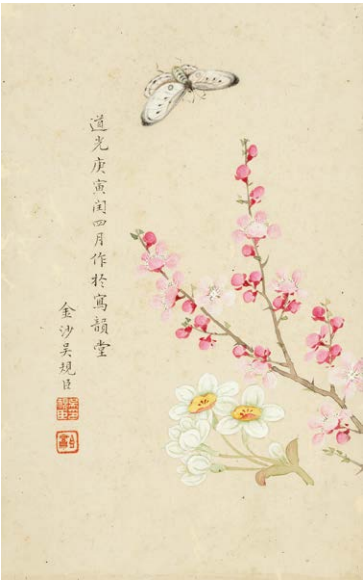 道光庚寅閏四月作於寫韻堂
金沙吴規臣